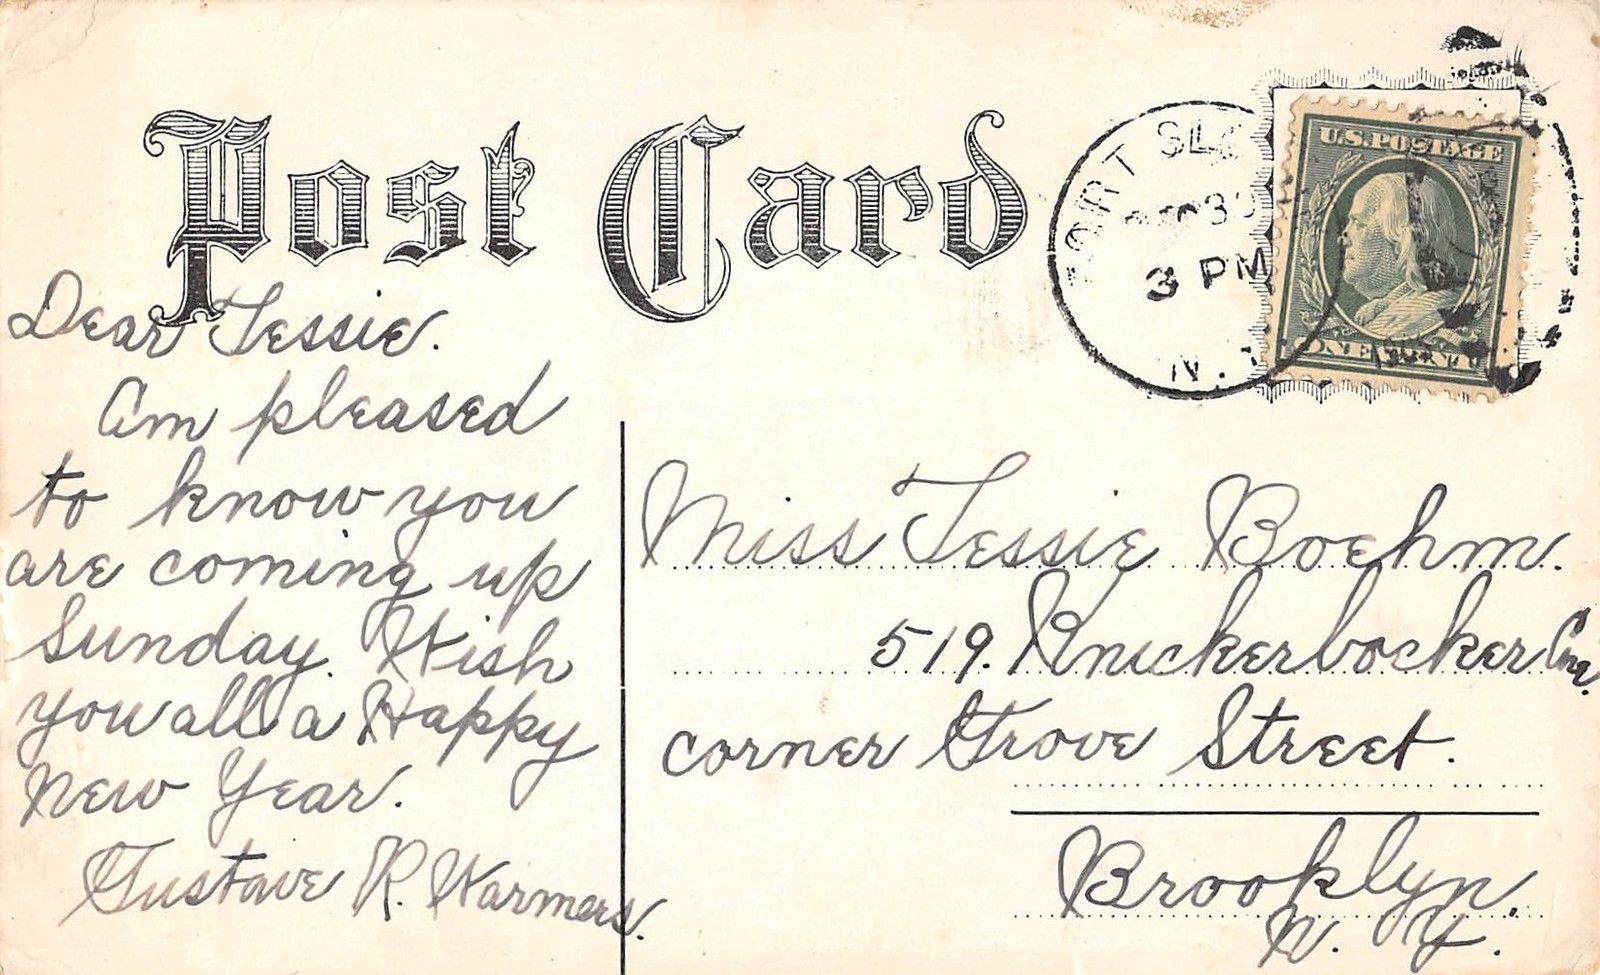 Post Card
FORT SL
DEC 30
3 PM
N.
U.S. POSTAGE
ONE CENT
Dear Tessie.
Am pleased
to know you
are coming up
Sunday. Wish
you all a Happy
New Year.
Gustave R. Warmers.
Miss Tessie Boehm.
519. Knickerbocker Ave.
corner Grove Street.
Brooklyn.
N. Y.